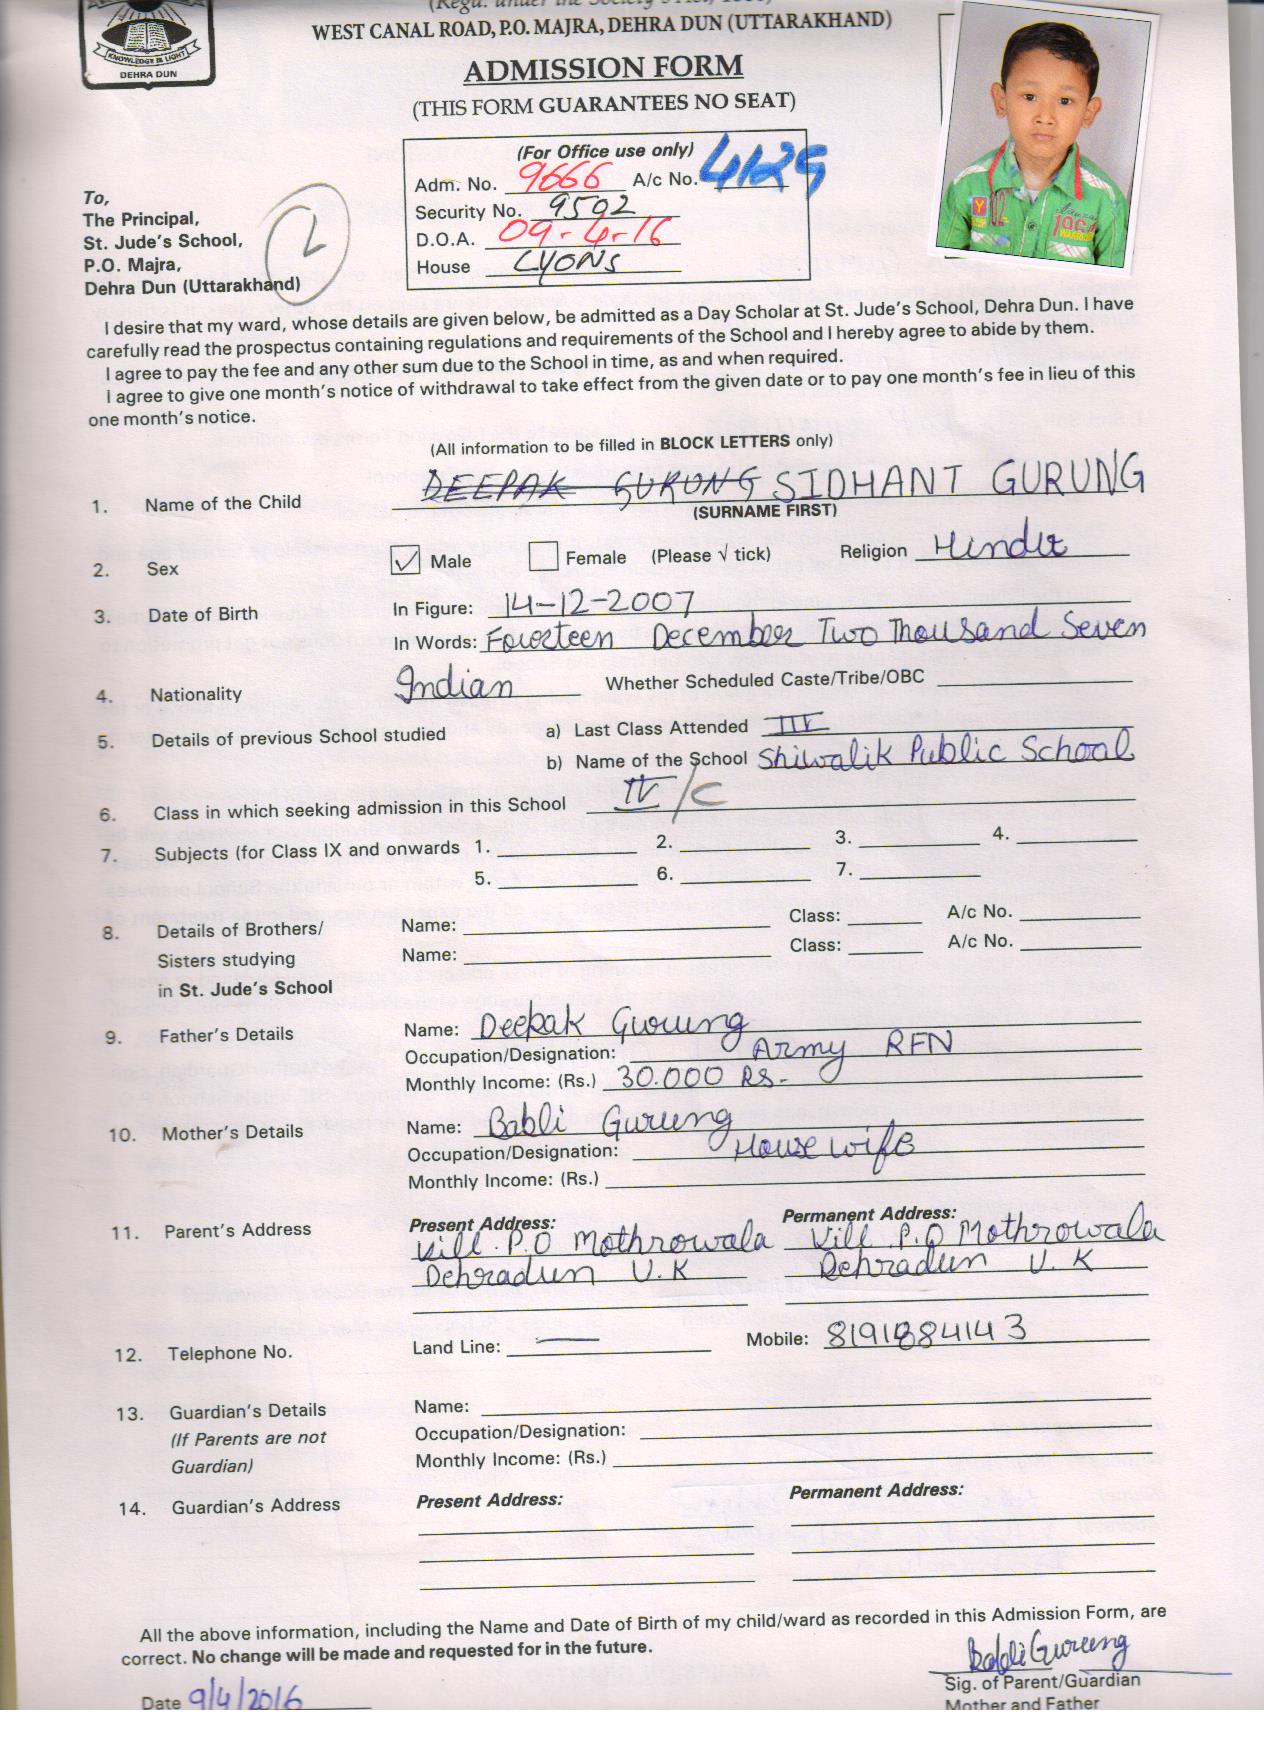 (Regd. under the Society's Act, 
WEST CANAL ROAD, P.O. MAJRA, DEHRA DUN (UTTARAKHAND)
KNOWLEDGE IS LIGHT
DEHRA DUN
ADMISSION FORM
(THIS FORM GUARANTEES NO SEAT)
(For Office use only)
Adm. No. 9666 A/c No. 4129
Security No. 9502
D.O.A. 09-4-16
House LYONS
To,
The Principal,
St. Jude's School,
P.O. Majra,
Dehra Dun (Uttarakhand)
2
I desire that my ward, whose details are given below, be admitted as a Day Scholar at St. Jude's School, Dehra Dun. I have
carefully read the prospectus containing regulations and requirements of the School and I hereby agree to abide by them.
I agree to pay the fee and any other sum due to the School in time, as and when required.
I agree to give one month's notice of withdrawal to take effect from the given date or to pay one month's fee in lieu of this
one month's notice.
(All information to be filled in BLOCK LETTERS only)
1. Name of the Child DEEPAK GURUNG SIDHANT GURUNG
(SURNAME FIRST)
2. Sex Male Female (Please √ tick) Religion Hindu
3. Date of Birth In Figure: 14-12-2007
In Words: Fourteen December Two Thousand Seven
4. Nationality Indian Whether Scheduled Caste/Tribe/OBC
5. Details of previous School studied a) Last Class Attended III
b) Name of the School Shiwalik Public School
6. Class in which seeking admission in this School IV/C
7. Subjects (for Class IX and onwards 1. 2. 3. 4.
5. 6. 7.
8. Details of Brothers/ Name: Class: A/c No.
Sisters studying Name: Class: A/c No.
in St. Jude's School
9. Father's Details Name: Deepak Gurung
Occupation/Designation: Army RFN
Monthly Income: (Rs.) 30.000 RS.
10. Mother's Details Name: Babli Gurung
Occupation/Designation: House wife
Monthly Income: (Rs.)
11. Parent's Address Present Address: Permanent Address:
Vill. P.O Mothrowala Vill P.O Mothrowala
Dehradun U.K Dehradun U.K
12. Telephone No. Land Line: Mobile: 8191884143
13. Guardian's Details Name:
(If Parents are not Occupation/Designation:
Guardian) Monthly Income: (Rs.)
14. Guardian's Address Present Address: Permanent Address:
All the above information, including the Name and Date of Birth of my child/ward as recorded in this Admission Form, are
correct. No change will be made and requested for in the future.
Babli Gurung
Sig. of Parent/Guardian
Date 9/4/2016 Mother and Father